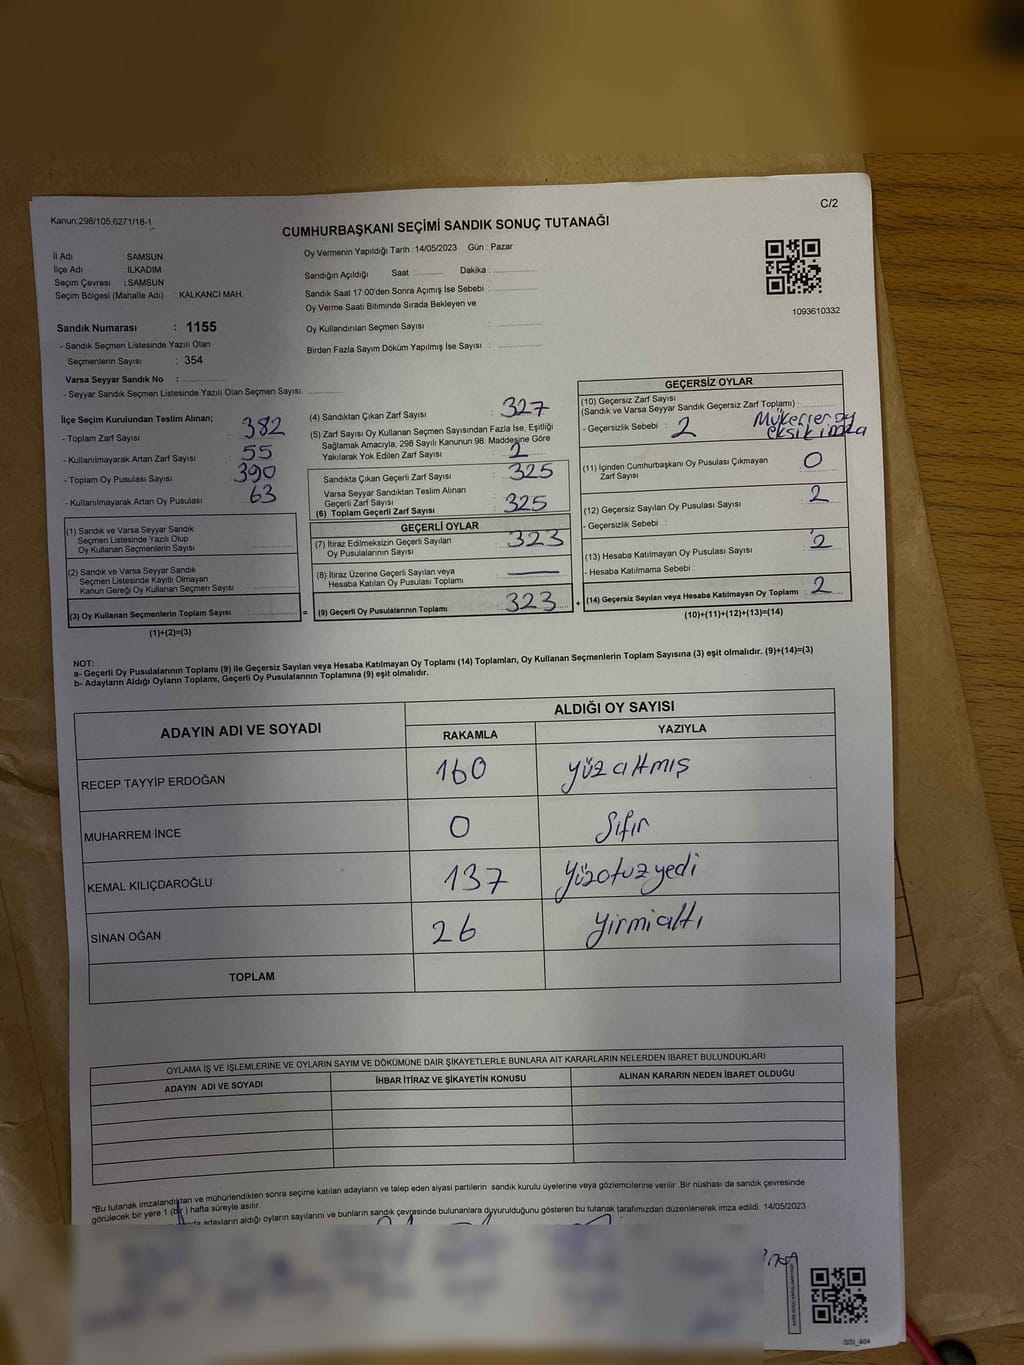 Kanun;298/105;6271/18-1
C/2
CUMHURBAŞKANI SEÇİMİ SANDIK SONUÇ TUTANAĞI
İl Adı : SAMSUN
İlçe Adı : İLKADIM
Seçim Çevresi : SAMSUN
Seçim Bölgesi (Mahalle Adı) : KALKANCI MAH.
Sandık Numarası : 1155
- Sandık Seçmen Listesinde Yazılı Olan
Seçmenlerin Sayısı : 354
Varsa Seyyar Sandık No :
- Seyyar Sandık Seçmen Listesinde Yazılı Olan Seçmen Sayısı:
Oy Vermenin Yapıldığı Tarih : 14/05/2023 Gün : Pazar
Sandığın Açıldığı Saat : Dakika :
Sandık Saat 17:00'den Sonra Açılmış İse Sebebi :
Oy Verme Saati Bitiminde Sırada Bekleyen ve
Oy Kullandırılan Seçmen Sayısı :
Birden Fazla Sayım Döküm Yapılmış İse Sayısı :
1093610332
İlçe Seçim Kurulundan Teslim Alınan;
- Toplam Zarf Sayısı : 382
- Kullanılmayarak Artan Zarf Sayısı : 55
- Toplam Oy Pusulası Sayısı : 390
- Kullanılmayarak Artan Oy Pusulası : 63
(1) Sandık ve Varsa Seyyar Sandık
Seçmen Listesinde Yazılı Olup
Oy Kullanan Seçmenlerin Sayısı :
(2) Sandık ve Varsa Seyyar Sandık
Seçmen Listesinde Kayıtlı Olmayan
Kanun Gereği Oy Kullanan Seçmen Sayısı :
(3) Oy Kullanan Seçmenlerin Toplam Sayısı :
(1)+(2)=(3)
(4) Sandıktan Çıkan Zarf Sayısı : 327
(5) Zarf Sayısı Oy Kullanan Seçmen Sayısından Fazla İse, Eşitliği
Sağlamak Amacıyla; 298 Sayılı Kanunun 98. Maddesine Göre
Yakılarak Yok Edilen Zarf Sayısı : 2
Sandıkta Çıkan Geçerli Zarf Sayısı : 325
Varsa Seyyar Sandıktan Teslim Alınan
Geçerli Zarf Sayısı
(6) Toplam Geçerli Zarf Sayısı : 325
GEÇERLİ OYLAR
(7) İtiraz Edilmeksizin Geçerli Sayılan
Oy Pusulalarının Sayısı : 323
(8) İtiraz Üzerine Geçerli Sayılan veya
Hesaba Katılan Oy Pusulası Toplamı : —
= (9) Geçerli Oy Pusulalarının Toplamı : 323 +
GEÇERSİZ OYLAR
(10) Geçersiz Zarf Sayısı
(Sandık ve Varsa Seyyar Sandık Geçersiz Zarf Toplamı) :
- Geçersizlik Sebebi : 2 Mükerrer oy
eksik imza
(11) İçinden Cumhurbaşkanı Oy Pusulası Çıkmayan
Zarf Sayısı : 0
(12) Geçersiz Sayılan Oy Pusulası Sayısı : 2
- Geçersizlik Sebebi :
(13) Hesaba Katılmayan Oy Pusulası Sayısı : 2
- Hesaba Katılmama Sebebi :
(14) Geçersiz Sayılan veya Hesaba Katılmayan Oy Toplamı : 2
(10)+(11)+(12)+(13)=(14)
NOT:
a- Geçerli Oy Pusulalarının Toplamı (9) ile Geçersiz Sayılan veya Hesaba Katılmayan Oy Toplamı (14) Toplamları, Oy Kullanan Seçmenlerin Toplam Sayısına (3) eşit olmalıdır. (9)+(14)=(3)
b- Adayların Aldığı Oyların Toplamı, Geçerli Oy Pusulalarının Toplamına (9) eşit olmalıdır.
ADAYIN ADI VE SOYADI
ALDIĞI OY SAYISI
RAKAMLA YAZIYLA
RECEP TAYYİP ERDOĞAN 160 yüzaltmış
MUHARREM İNCE 0 Sıfır
KEMAL KILIÇDAROĞLU 137 yüzotuzyedi
SİNAN OĞAN 26 yirmialtı
TOPLAM
OYLAMA İŞ VE İŞLEMLERİNE VE OYLARIN SAYIM VE DÖKÜMÜNE DAİR ŞİKAYETLERLE BUNLARA AİT KARARLARIN NELERDEN İBARET BULUNDUKLARI
ADAYIN ADI VE SOYADI İHBAR İTİRAZ VE ŞİKAYETİN KONUSU ALINAN KARARIN NEDEN İBARET OLDUĞU
*Bu tutanak imzalandıktan ve mühürlendikten sonra seçime katılan adayların ve talep eden siyasi partilerin sandık kurulu üyelerine veya gözlemcilerine verilir. Bir nüshası da sandık çevresinde
görülecek bir yere 1 (bir) hafta süreyle asılır.
adayların aldığı oyların sayılarını ve bunların sandık çevresinde bulunanlara duyurulduğunu gösteren bu tutanak tarafımızdan düzenlenerek imza edildi. 14/05/2023
SSİ_404